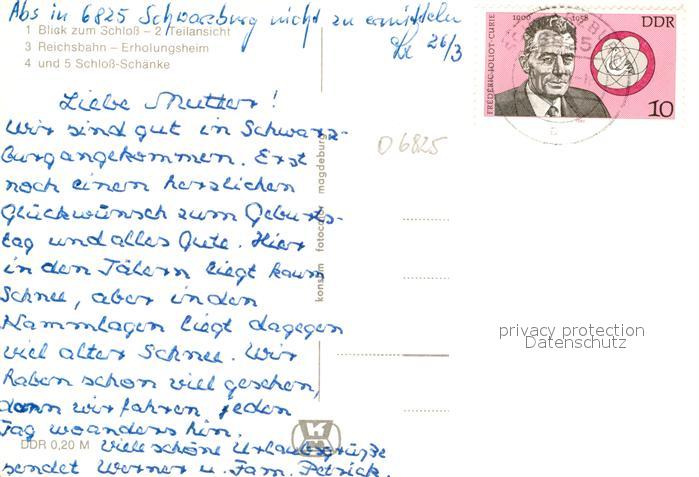 Abs in 6825 Schwarzburg nicht zu ermitteln
26/3
1 Blick zum Schloß – 2 Teilansicht
3 Reichsbahn – Erholungsheim
4 und 5 Schloß-Schänke
FRÉDÉRIC JOLIOT-CURIE
1900 1958
DDR
10
Liebe Mutter!
Wir sind gut in Schwarz-
burg angekommen. Erst
noch einen herzlichen
Glückwünsch zum Geburts-
tag und alles Gute. Hier
in den Tälern liegt kaum
Schnee, aber in den
Kammlagen liegt dagegen
viel alter Schnee. Wir
haben schon viel gesehen,
denn wir fahren jeden
Tag woanders hin.
Viele schöne Urlaubsgrüße
sendet Werner u. Fam. Petrick.
DDR 0,20 M
konsum fotocolor magdeburg
D6825
privacy protection
Datenschutz